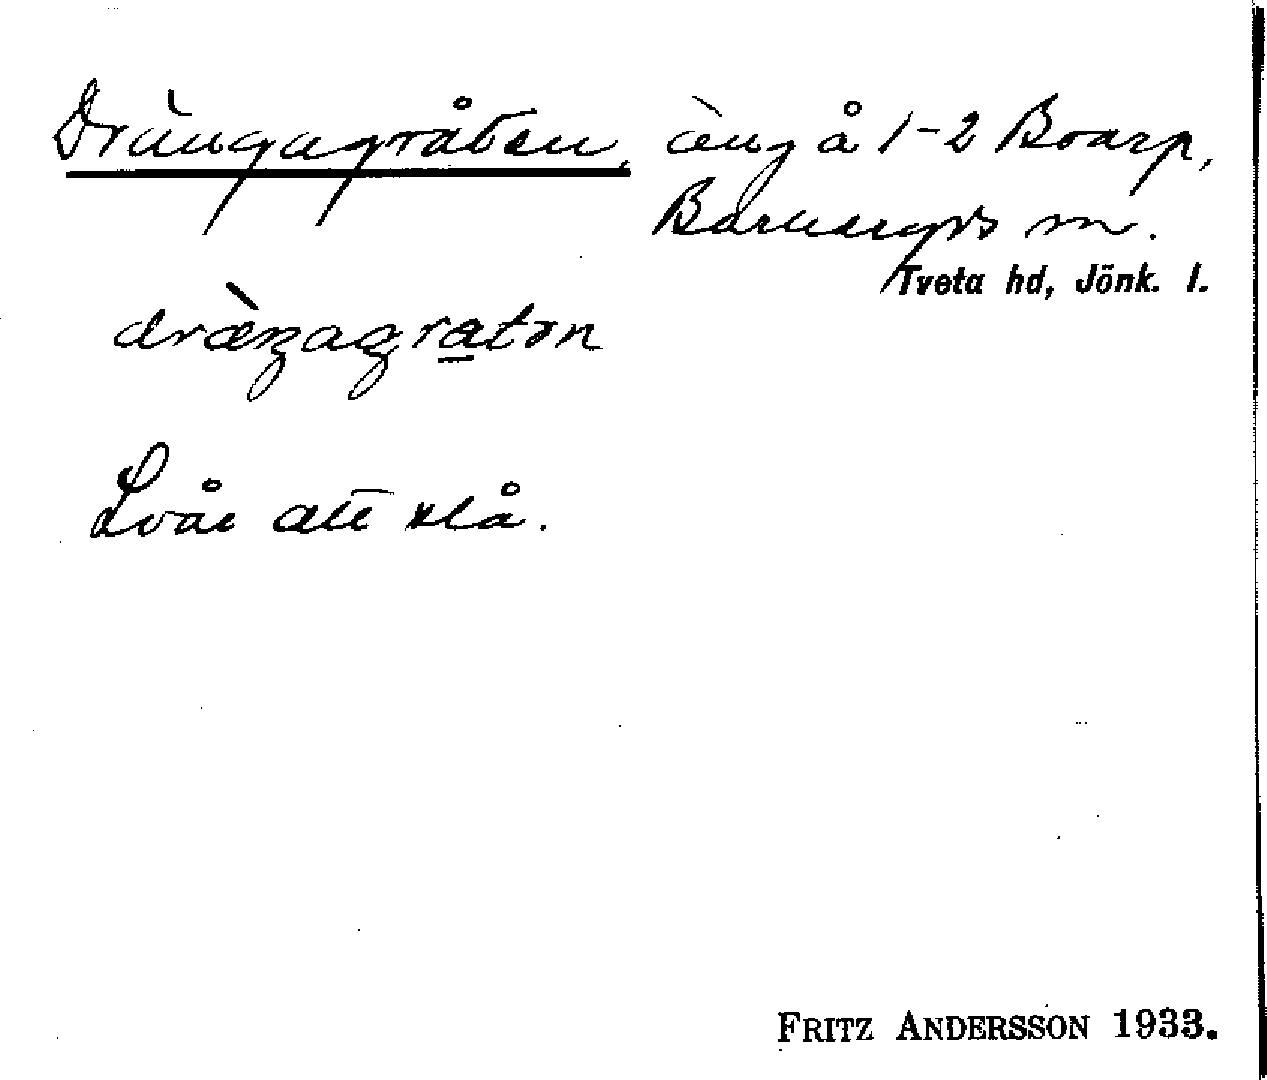 Drängagråten, äng å 1-2 Boarp,
Barnarps sn.
Tveta hd, Jönk. l.
dræ̀ŋagratən
Svår att slå.
FRITZ ANDERSSON 1933.